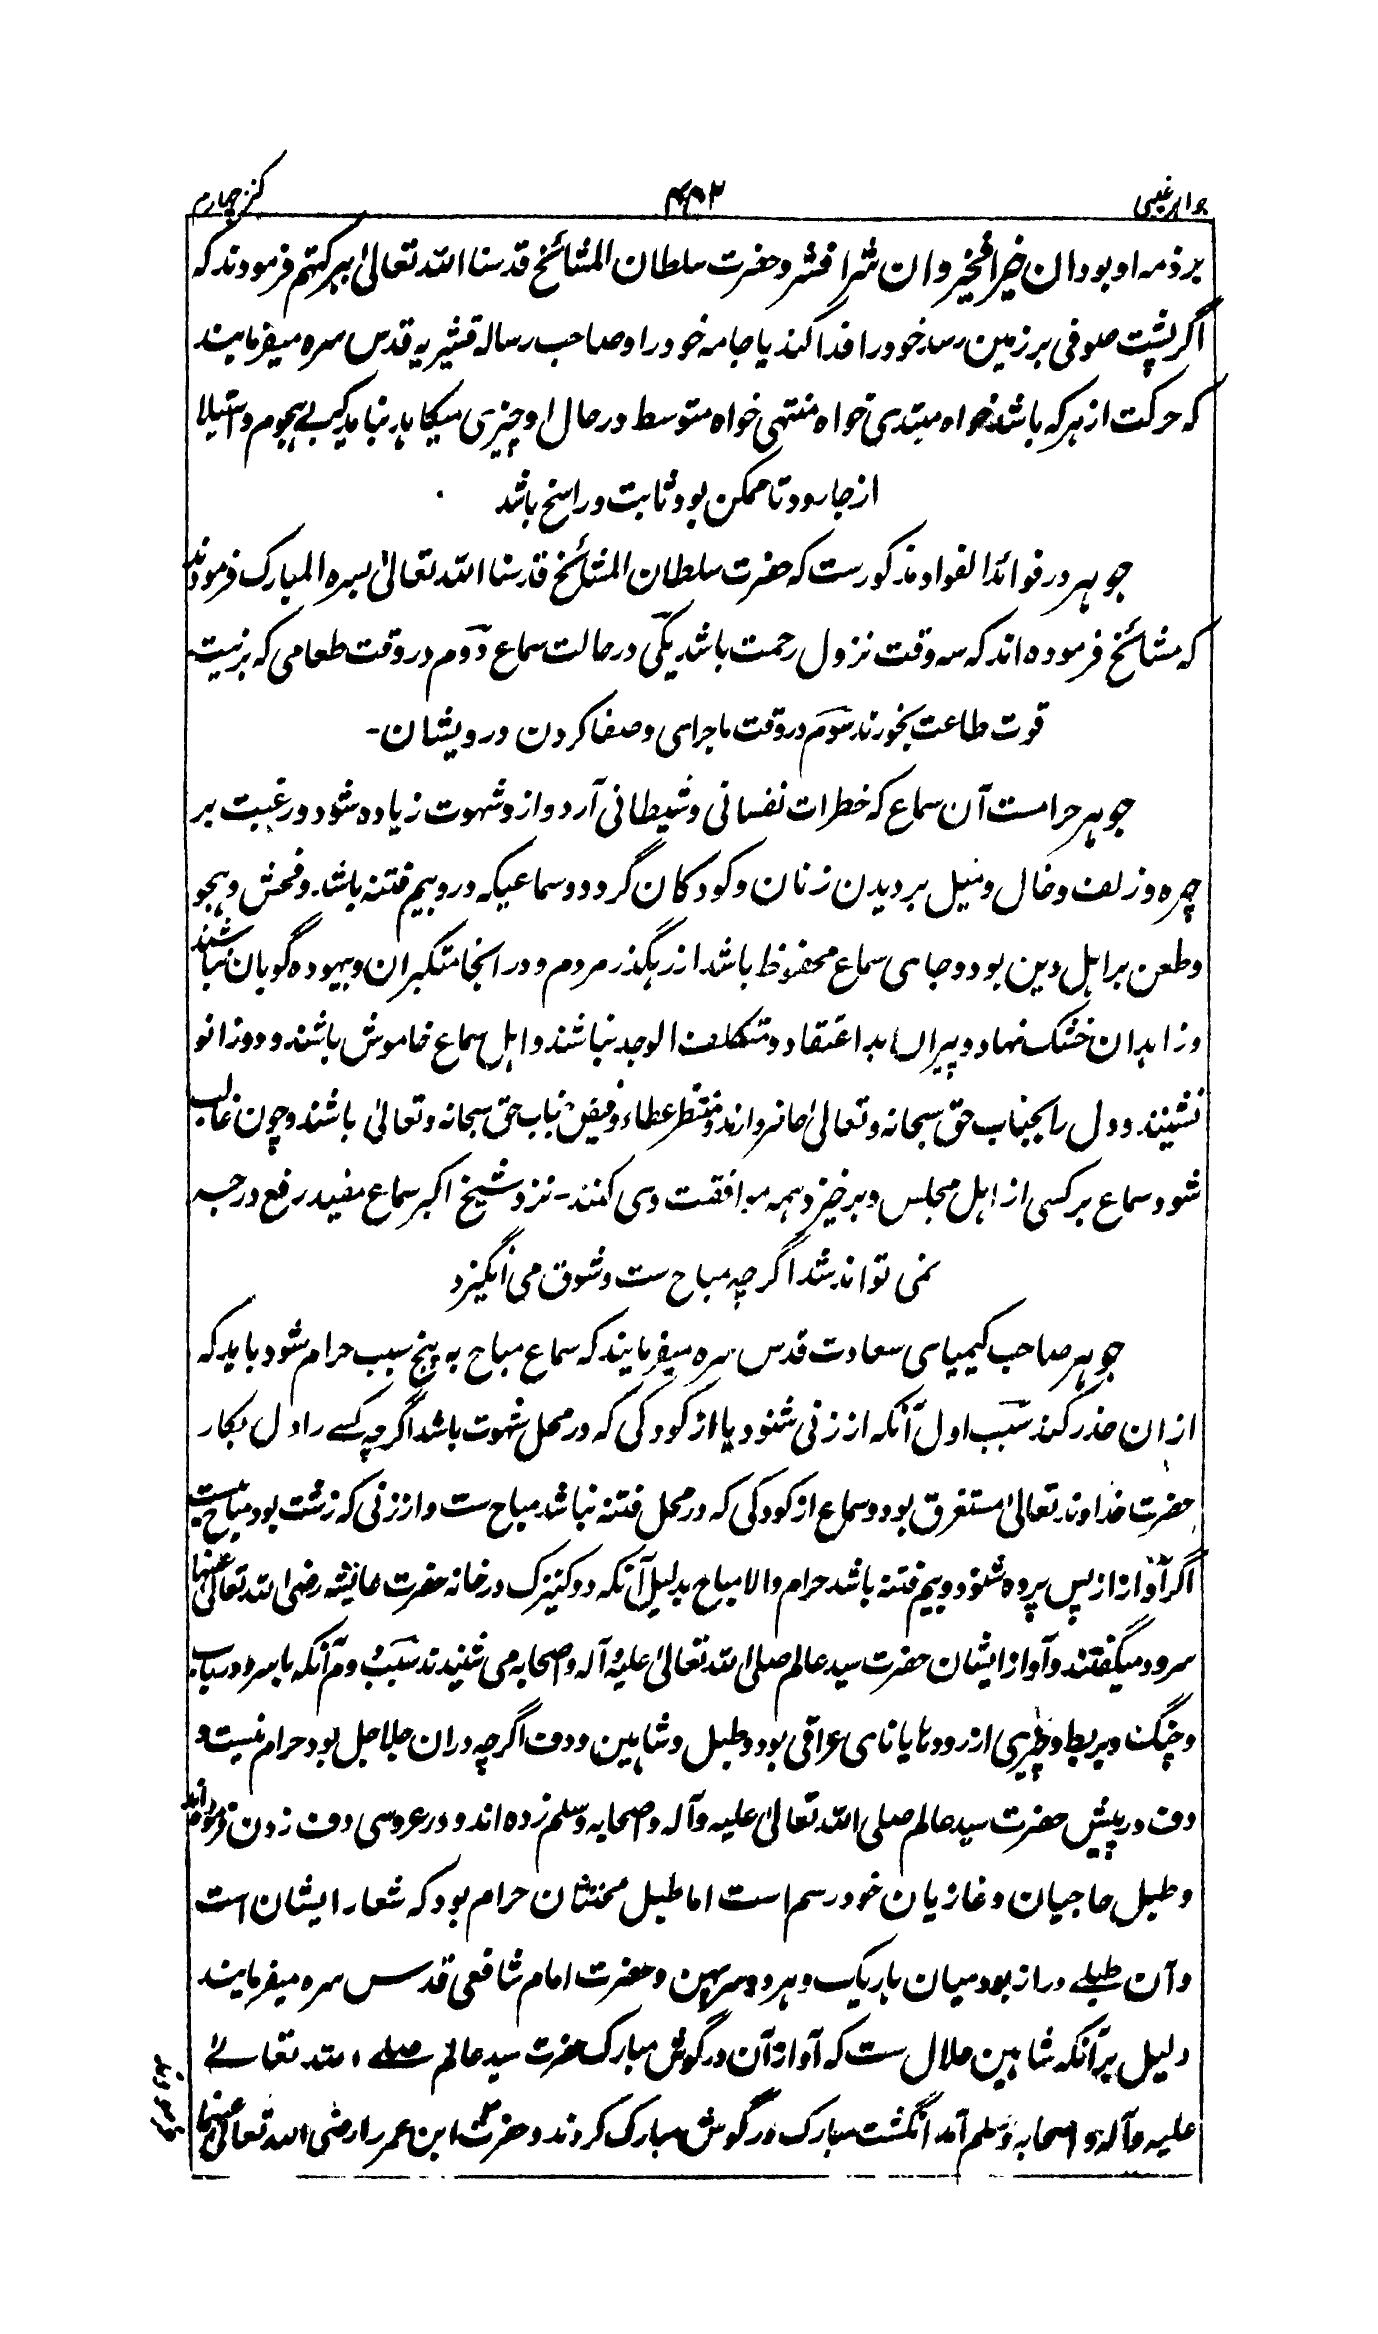 جواهر غیبی ۴۸۲ کنز چهارم
بر ذمه او بود ان خیرا فخیر وان شرا فشر وحضرت سلطان المشائخ قدسنا الله تعالیٰ بسرکتهم فرمودند که
اگر پشت صوفی بر زمین رسد خود را فدا کند یا جامه خود را وصاحب رساله قشیریه قدس سره میفرمایند
که حرکت از هر که باشد خواه مبتدی خواه منتهی خواه متوسط در حال او چیزی میکاهد نباید که بے هجوم واستیلا
از جا رود تا ممکن بود ثابت وراسخ باشد
جوهر در فوائد الفواد مذکورست که حضرت سلطان المشائخ قدسنا الله تعالیٰ بسره المبارک فرمودند
که مشائخ فرموده اند که سه وقت نزول رحمت باشد یکی در حالت سماع دوم در وقت طعامی که بر نیت
قوت طاعت بخورند سوم در وقت ماجرای وصفا کردن درویشان-
جوهر حرامست آن سماع که خطرات نفسانی وشیطانی آرد واز و شهوت زیاده شود ورغبت بر
چهره وزلف وخال ومیل بر دیدن زنان وکودکان گردد وسماعیکه درو بیم فتنه باشد وفحش وهجو
وطعن بر اهل دین بود وجای سماع محفوظ باشد از رهگذر مردم ودر انجا متکبران وبیهوده گویان نباشند
وزاهدان خشک نهاد وپیران بد اعتقاد ومتکلف الوجد نباشند واهل سماع خاموش باشند ودوزانو
نشینند ودل را بجناب حق سبحانه وتعالیٰ حاضر دارند ومنتظر عطاء وفیض جناب حق سبحانه وتعالیٰ باشند وچون غالب
شود سماع بر کسی از اهل مجلس وبر خیزد همه موافقت وی کنند- نزد شیخ اکبر سماع مفید رفع درجه
نمی تواند شد اگرچه مباح ست وشوق می انگیزد
جوهر صاحب کیمیای سعادت قدس سره میفرمایند که سماع مباح به پنج سبب حرام شود باید که
از ان حذر کند سبب اول آنکه از زنی شنود یا از کودکی که در محل شهوت باشد اگرچه کسے را دل بکار
حضرت خداوند تعالیٰ مستغرق بود وسماع از کودکی که در محل فتنه نباشد مباح ست واز زنی که زشت بود مباح نیست
اگر آواز از پس پرده شنود وبیم فتنه باشد حرام والا مباح بدلیل آنکه دو کنیزک در خانه حضرت عائشه رضی الله تعالیٰ عنها
سرود میگفتند وآواز ایشان حضرت سید عالم صلی الله تعالیٰ علیه وآله واصحابه می شنیدند سبب دوم آنکه با سرود رباب
وچنگ وبربط وچیزی از رودها یا نای عراقی بود وطبل وشاهین ودف اگرچه دران جلاجل بود حرام نیست و
دف در پیش حضرت سید عالم صلی الله تعالیٰ علیه وآله واصحابه وسلم زده اند ودر عروسی دف زدن فرموده اند
وطبل حاجیان وغازیان خود رسم است اما طبل مخنثان حرام بود که شعار ایشان است
وآن طبلے دراز بود میان باریک وهر دو سر پهن وحضرت امام شافعی قدس سره میفرمایند
دلیل بر آنکه شاهین حلال ست که آواز آن در گوش مبارک حضرت سید عالم صلے الله تعالےٰ
علیه وآله واصحابه وسلم آمد انگشت مبارک در گوش مبارک کردند وحضرت ابن عمر را رضی الله تعالیٰ عنهما